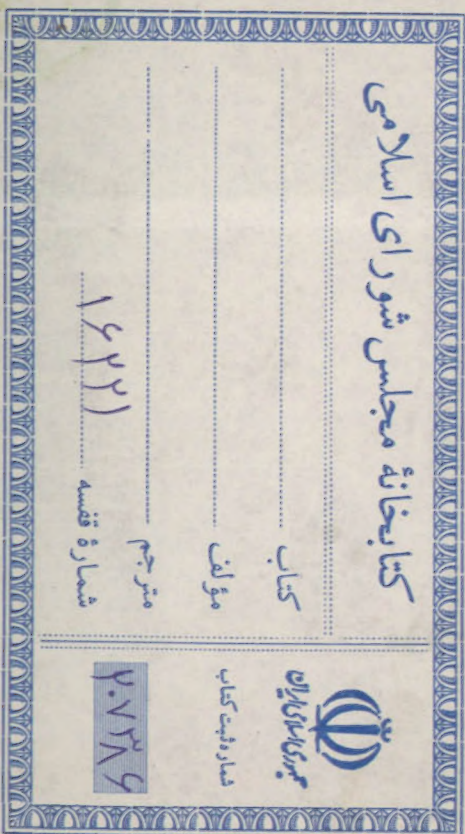 کتابخانهٔ مجلس شورای اسلامی
کتاب
مؤلف
مترجم
شمارهٔ قفسه ۱۶۲۲۱
جمهوری اسلامی ایران
شماره ثبت کتاب
۲۰۷۳۸۶